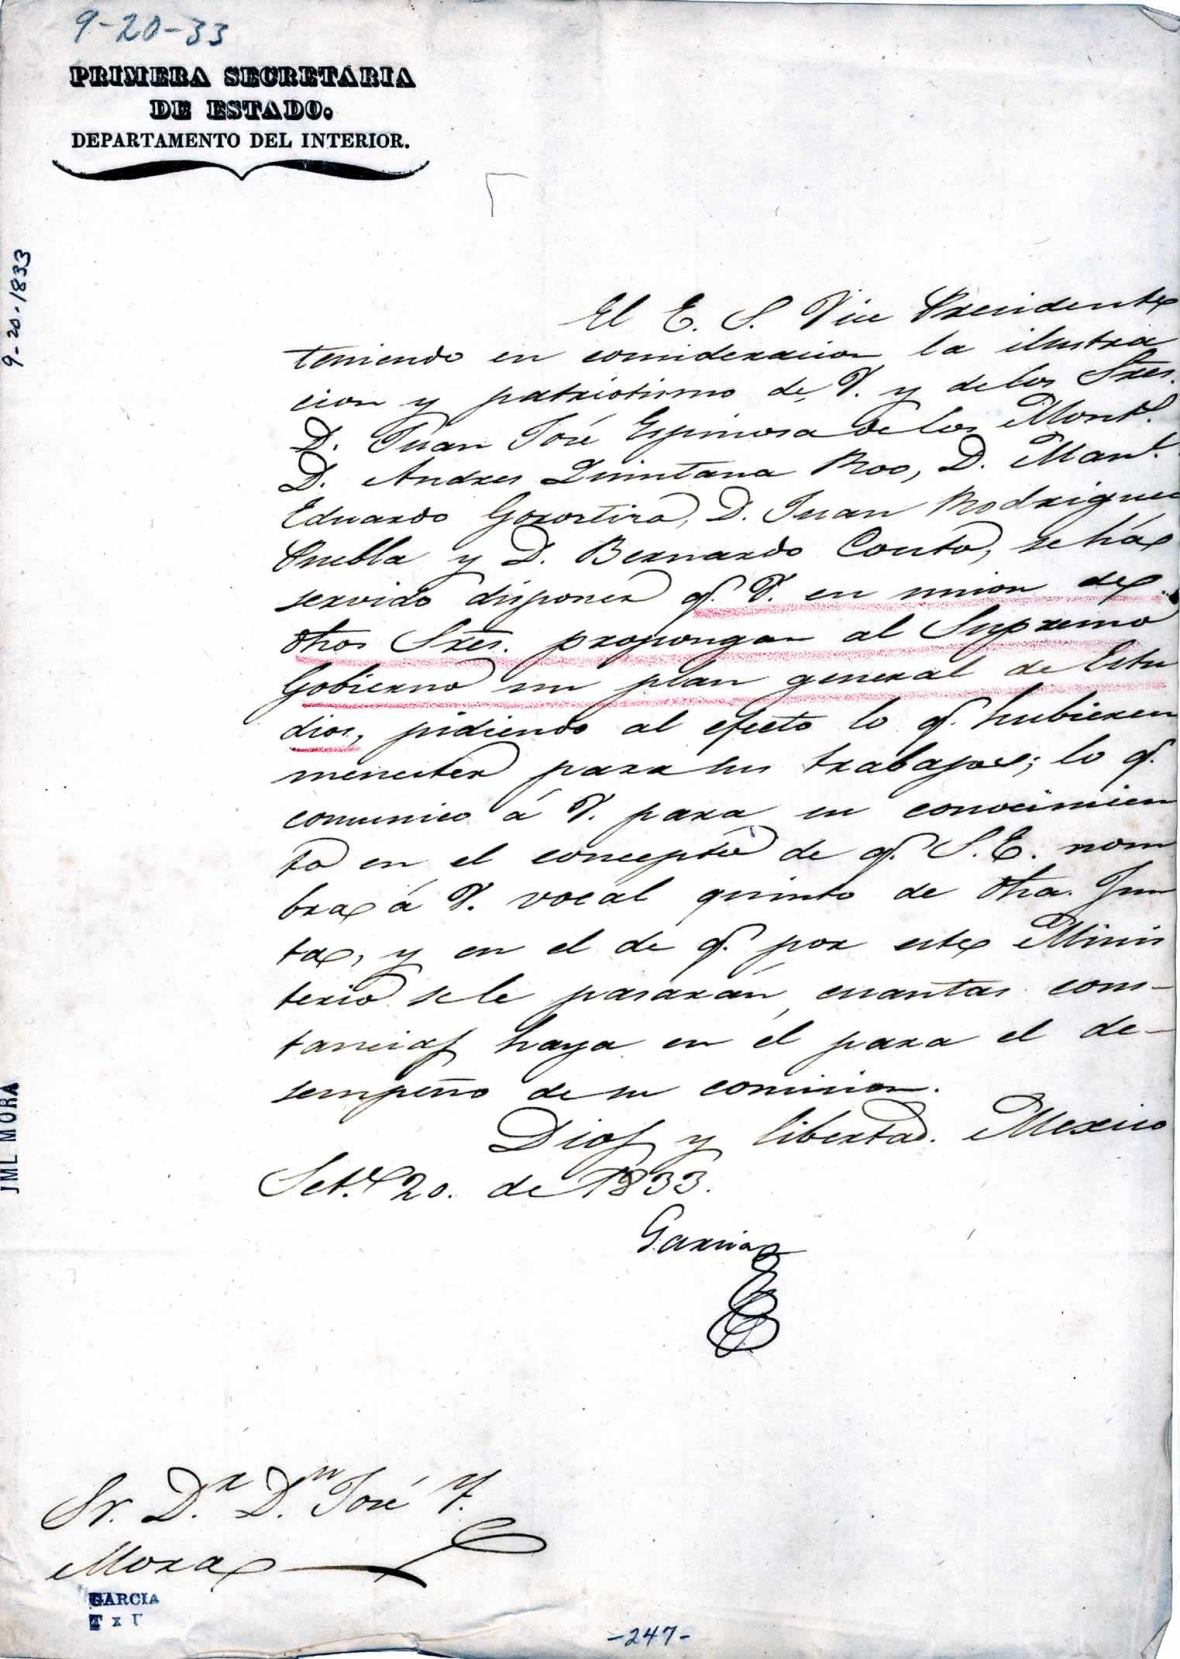 9-20-33
PRIMERA SECRETARIA
DE ESTADO.
DEPARTAMENTO DEL INTERIOR.
9-20-1833
El E. S. Vice Presidente
teniendo en consideracion la ilustra
cion y patriotismo de V. y de los Sres.
D. Juan José Espinosa de los Mont.s
D. Andres Quintana Roo, D. Man.l
Eduardo Gorostiza, D. Juan Rodriguez
Puebla y D. Bernardo Couto, se há
servido disponer q.e V. en union de
otros Sres. propongan al Supremo
Gobierno un plan general de Estu
dios, pidiendo al efecto lo q.e hubieren
menester para sus trabajos; lo q.e
comunico á V. para su conocimien
to en el concepto de q.e S. E. nom
bra á V. vocal quinto de dha. Jun
ta, y en el de q.e por este Minis
terio se le pasarán cuantas cons-
tancias haya en él para el de-
sempeño de su comision.
Dios y libertad. Mexico
Set.e 20. de 1833.
Garcia
JML MORA
Sr. D.r D.n José
Mora
GARCIA
-247-